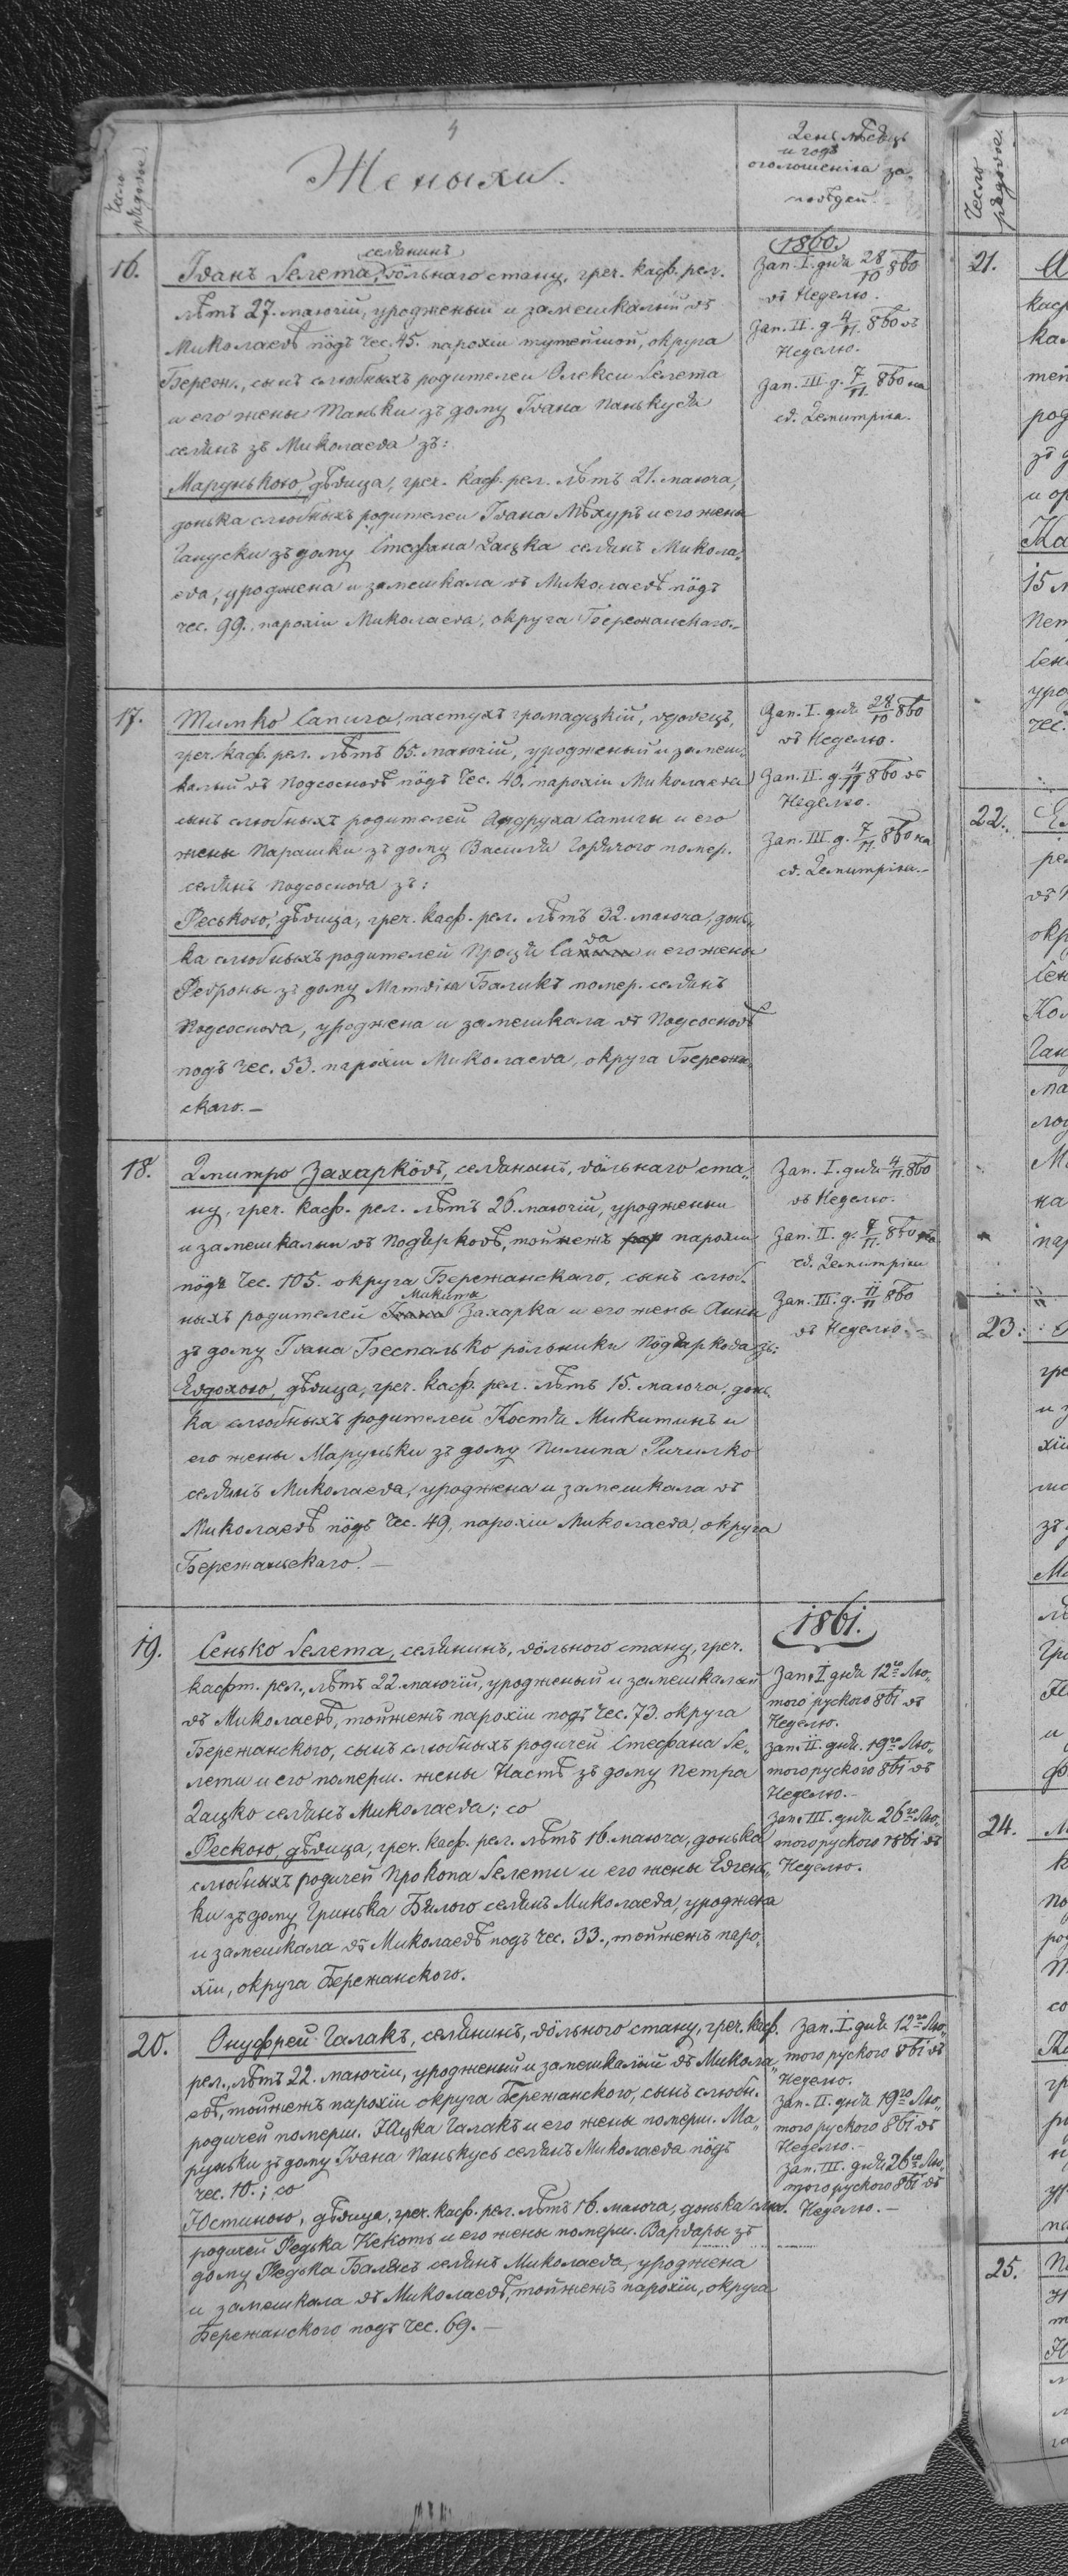 4
Число рядовое
Женыхи.
День мѣсяць
и годъ
оголошенія за-
повѣдей.
Число рядовое
1860.
16.
селянинъ
Іванъ Селета, вольнаго стану, греч. каѳ. рел.
лѣтъ 27. маючій, уродженый и замешкалый въ
Миколаевѣ подъ чес. 45. парохіи тутейшой, округа
Бережн., сынъ слюбныхъ родителей Олексы Селета
и его жены Таньки зъ дому Івана Панькусѣ
селянъ зъ Миколаева зъ:
Марунькою, дѣвица, греч. каѳ. рел. лѣтъ 21. маюча,
донька слюбныхъ родителей Івана Мѣхуръ и его жены
Гануски зъ дому Стефана Дацка селянъ Микола-
ева, уроджена и замешкала въ Миколаевѣ подъ
чес. 99. парохіи Миколаева, округа Бережанскаго.
Зап. I. дня 28/10 860
въ Неделю.
Зап. II. д. 4/11 860 въ
Неделю.
Зап. III. д. 7/11. 860 на
св. Демитрія.
17.
Тимко Сапига, пастухъ громадзкій, вдовець,
греч. каѳ. рел. лѣтъ 65. маючій, уродженый и замеш-
калый въ Подсосновѣ подъ чес. 40. парохіи Миколаева
сынъ слюбныхъ родителей Андруха Сапиги и его
жены Парашки зъ дому Василя Горячого помер.
селянъ Подсоснова зъ:
Феською, дѣвица, греч. каѳ. рел. лѣтъ 32. маюча, донь-
ка слюбныхъ родителей Проця Сава и его жены
Феброны зъ дому Матвія Баликъ помер. селянъ
Подсоснова, уроджена и замешкала въ Подсосновѣ
подъ чес. 53. парохіи Миколаева, округа Бережан-
скаго. —
Зап. I. дня 28/10 860
въ Неделю.
Зап. II. д. 4/11 860 въ
Неделю.
Зап. III. д. 7/11. 860 на
св. Демитрія. —
18.
Дмитро Захарковъ, селянинъ, вольнаго ста-
ну, греч. каѳ. рел. лѣтъ 26. маючій, уродженый
и замешкалый въ Подъярковѣ, тойжежъ пар парохіи
подъ чес. 105. округа Бережанскаго, сынъ слюб-
Микита
ныхъ родителей Івана Захарка и его жены Анны
зъ дому Івана Беспалько рольники Подъяркова зъ:
Евдохою, дѣвица, греч. каѳ. рел. лѣтъ 15. маюча, донь-
ка слюбныхъ родителей Костя Микитинъ и
его жены Маруньки зъ дому Пилипа Ричилко
селянъ Миколаева, уроджена и замешкала въ
Миколаевѣ подъ чес. 49, парохіи Миколаева, округа
Бережаньскаго. —
Зап. I. дня 4/11. 860
въ Неделю.
Зап. II. д. 7/11. 860 на
св. Демитрія
Зап. III. д. 11/11 860
въ Неделю. —
1861.
19.
Сенько Селета, селянинъ, вольного стану, греч.
каѳт. рел., лѣтъ 22. маючій, уродженый и замешкалый
въ Миколаевѣ, тойжежъ парохіи подъ чес. 73. округа
Бережанского, сынъ слюбныхъ родичей Стефана Се-
лети и его померш. жены Настѣ зъ дому Петра
Дацко селянъ Миколаева; со
Фескою, дѣвица, греч. каѳ. рел. лѣтъ 16. маюча, донька
слюбныхъ родичей Прокопа Селети и его жены Евгень-
ки зъ дому Гринька Бялого селянъ Миколаева, уроджена
и замешкала въ Миколаевѣ подъ чес. 33., тойжежъ паро-
хіи, округа Бережанского.
Зап. I дня 12го Лю-
того руского 861 въ
Неделю.
Зап. II. дня. 19го Лю-
того руского 861 въ
Неделю. —
Зап. III. дня 26го Лю-
того руского 1861 въ
Неделю.
20.
Онуфрей Галакъ, селянинъ, вольного стану, греч. каѳ.
рел., лѣтъ 22. маючій, уродженый и замешкалый въ Микола-
евѣ, тойжежъ парохіи округа Бережанского, сынъ слюбн.
родичей померш. Яцка Галакъ и его жены померш. Ма-
руньки зъ дому Івана Панькусь селянъ Миколаева подъ
чес. 10.; со
Юстиною, дѣвица, греч. каѳ. рел. лѣтъ 16. маюча, донька слю.
родичей Федька Кекоть и его жены померш. Варвары зъ
дому Федька Балясъ селянъ Миколаева, уроджена
и замешкала въ Миколаевѣ, тойжежъ парохіи, округа
Бережанского подъ чес. 69. —
Зап. I. дня 12го Лю-
того руского 861 въ
Неделю.
Зап. II. дня 19го Лю-
того руского 861 въ
Неделю. —
Зап. III. дня 26го Лю-
того руского 861 въ
Неделю. —
21.
22.
23.
24.
25.